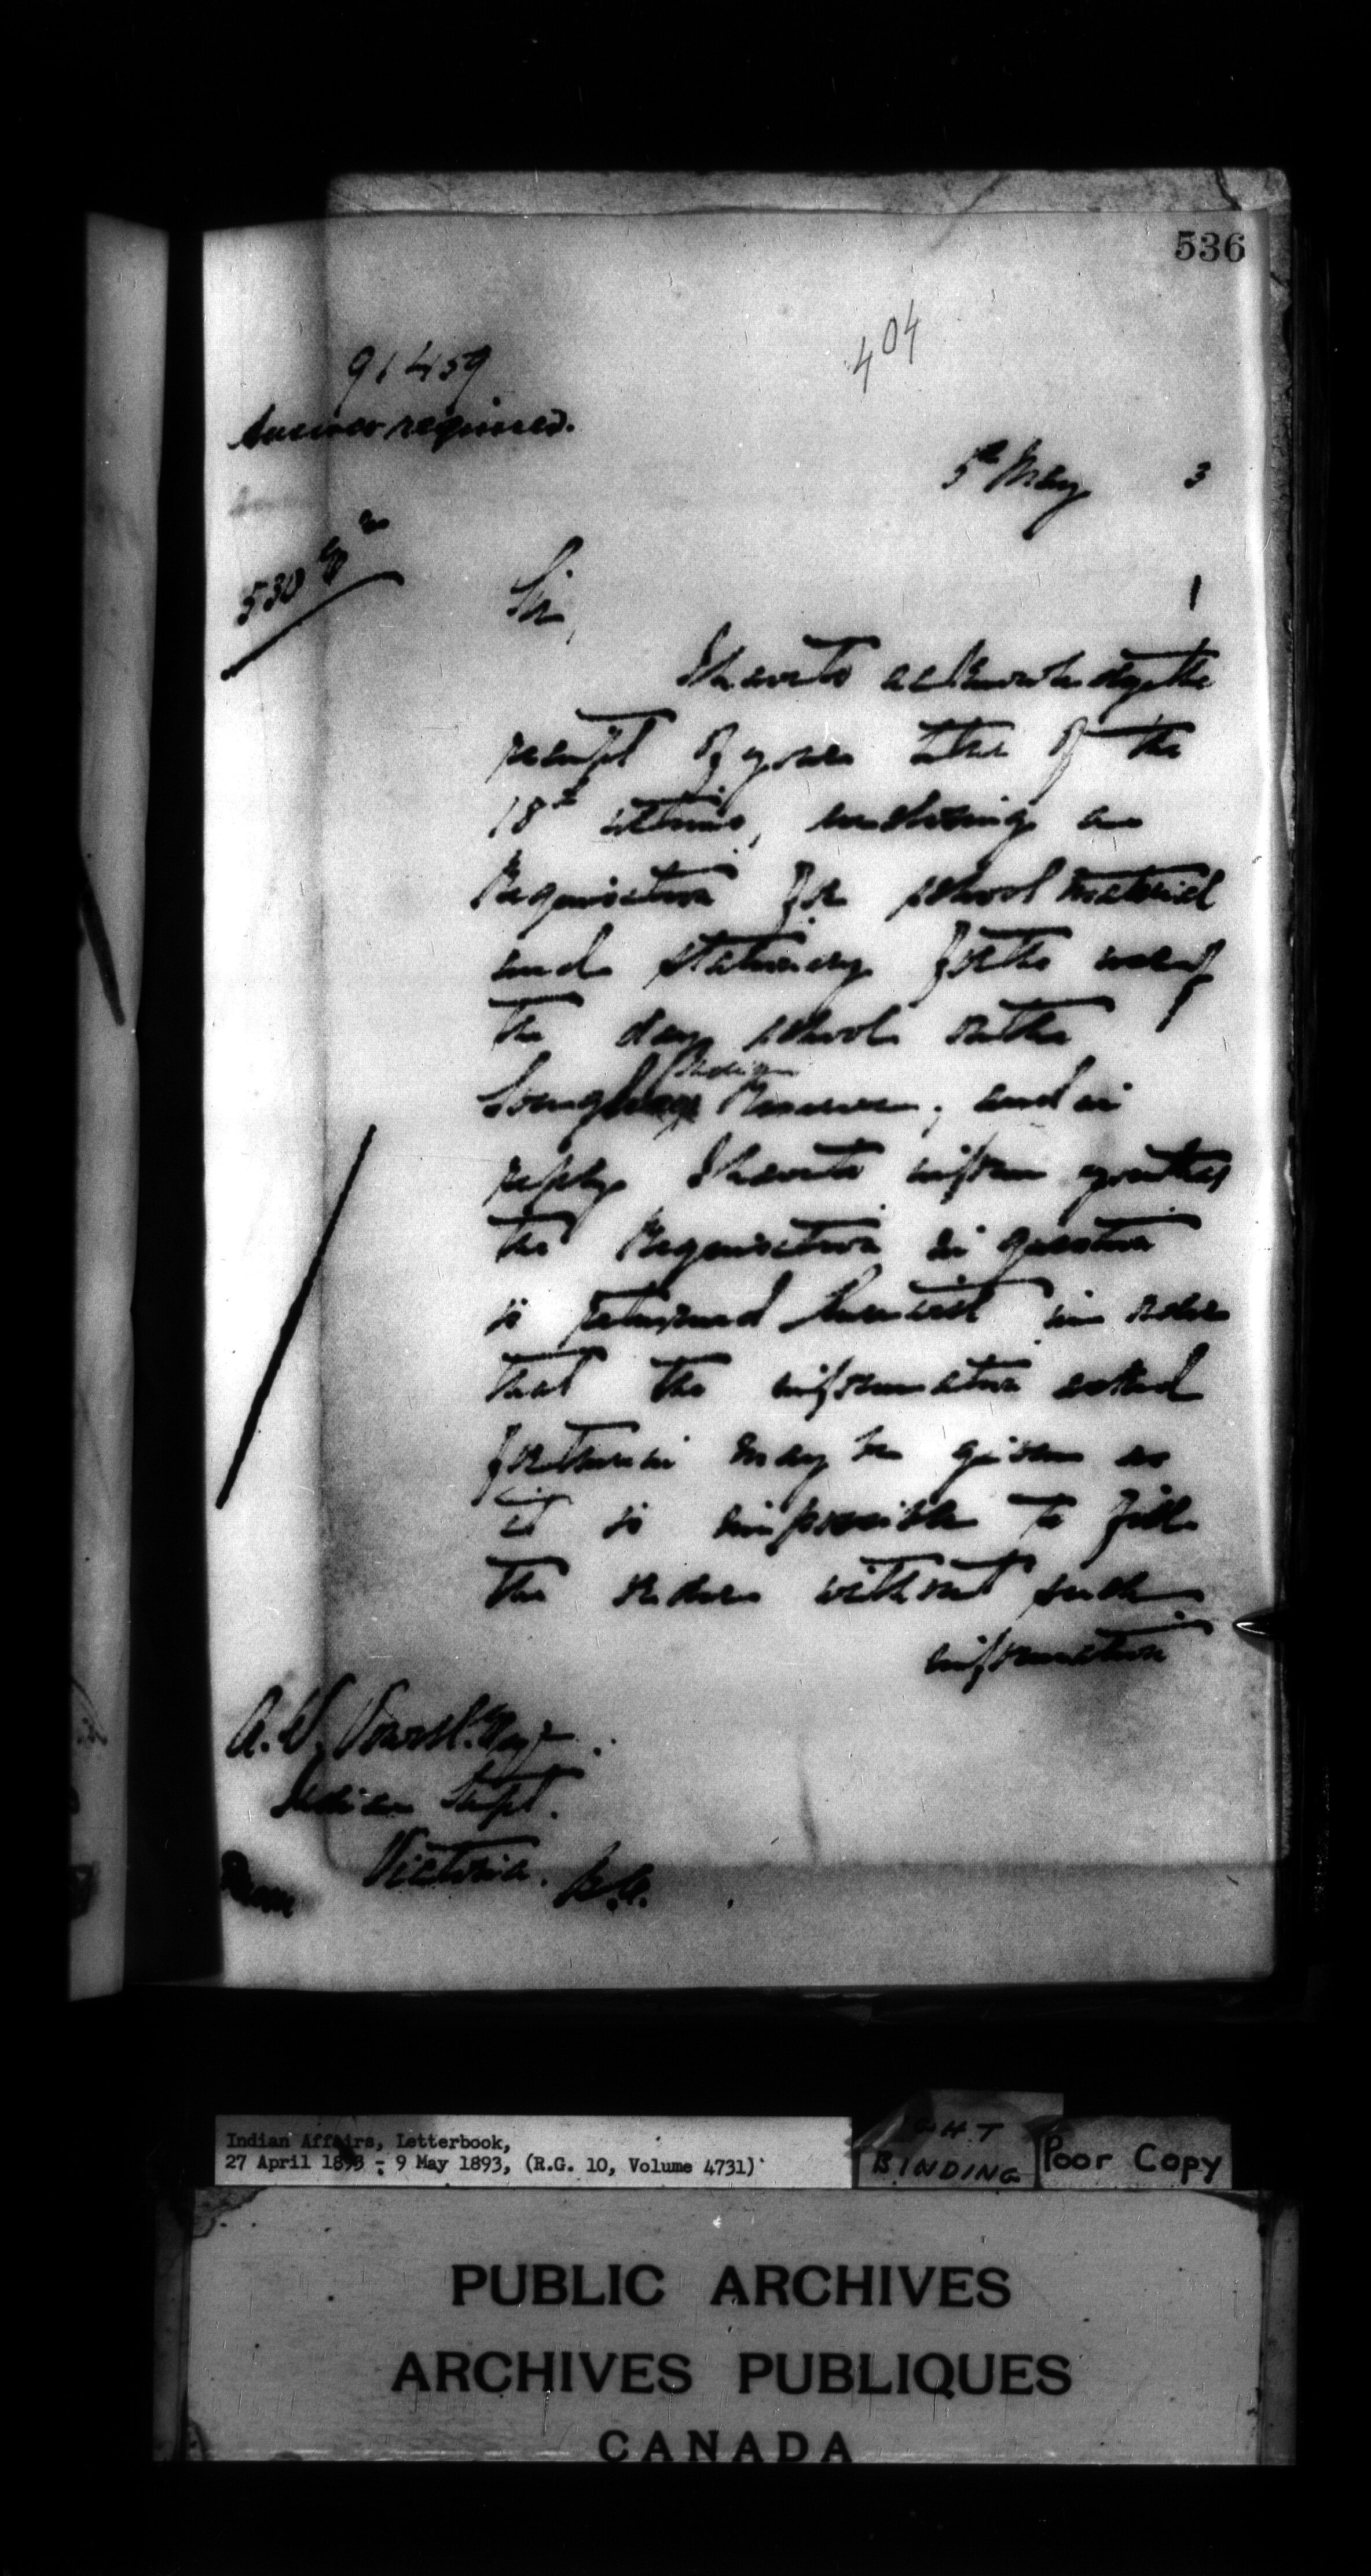 536
404
91459
Answer required.
5th May 3
530
Sir,
I have to acknowledge the
receipt of your letter of the
18th ultimo, enclosing a
Requisition for school material
and stationery for the use of
the day school on the
Indian
Songhees Reserve, and in
reply I have to inform you that
the Requisition in question
is returned herewith in order
that the information asked
for therein may be given as
it is impossible to fill
the order without such
information
A. W. Vowell. Esqr.
Indian Supt.
Victoria. B.C.
Indian Affairs, Letterbook,
27 April 1893 - 9 May 1893, (R.G. 10, Volume 4731)
BINDING
Poor Copy
PUBLIC ARCHIVES
ARCHIVES PUBLIQUES
CANADA